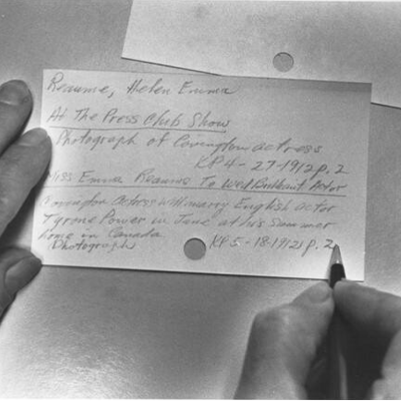 Reaume, Helen Emma
At The Press Club Show
Photograph of Covington actress
KP 4-27-1912 p. 2
Miss Emma Reaume To Wed Actor
Covington Actress will marry English actor
Tyrone Power in June at his summer
home in Canada
Photograph KP 5-18-1912 p. 2